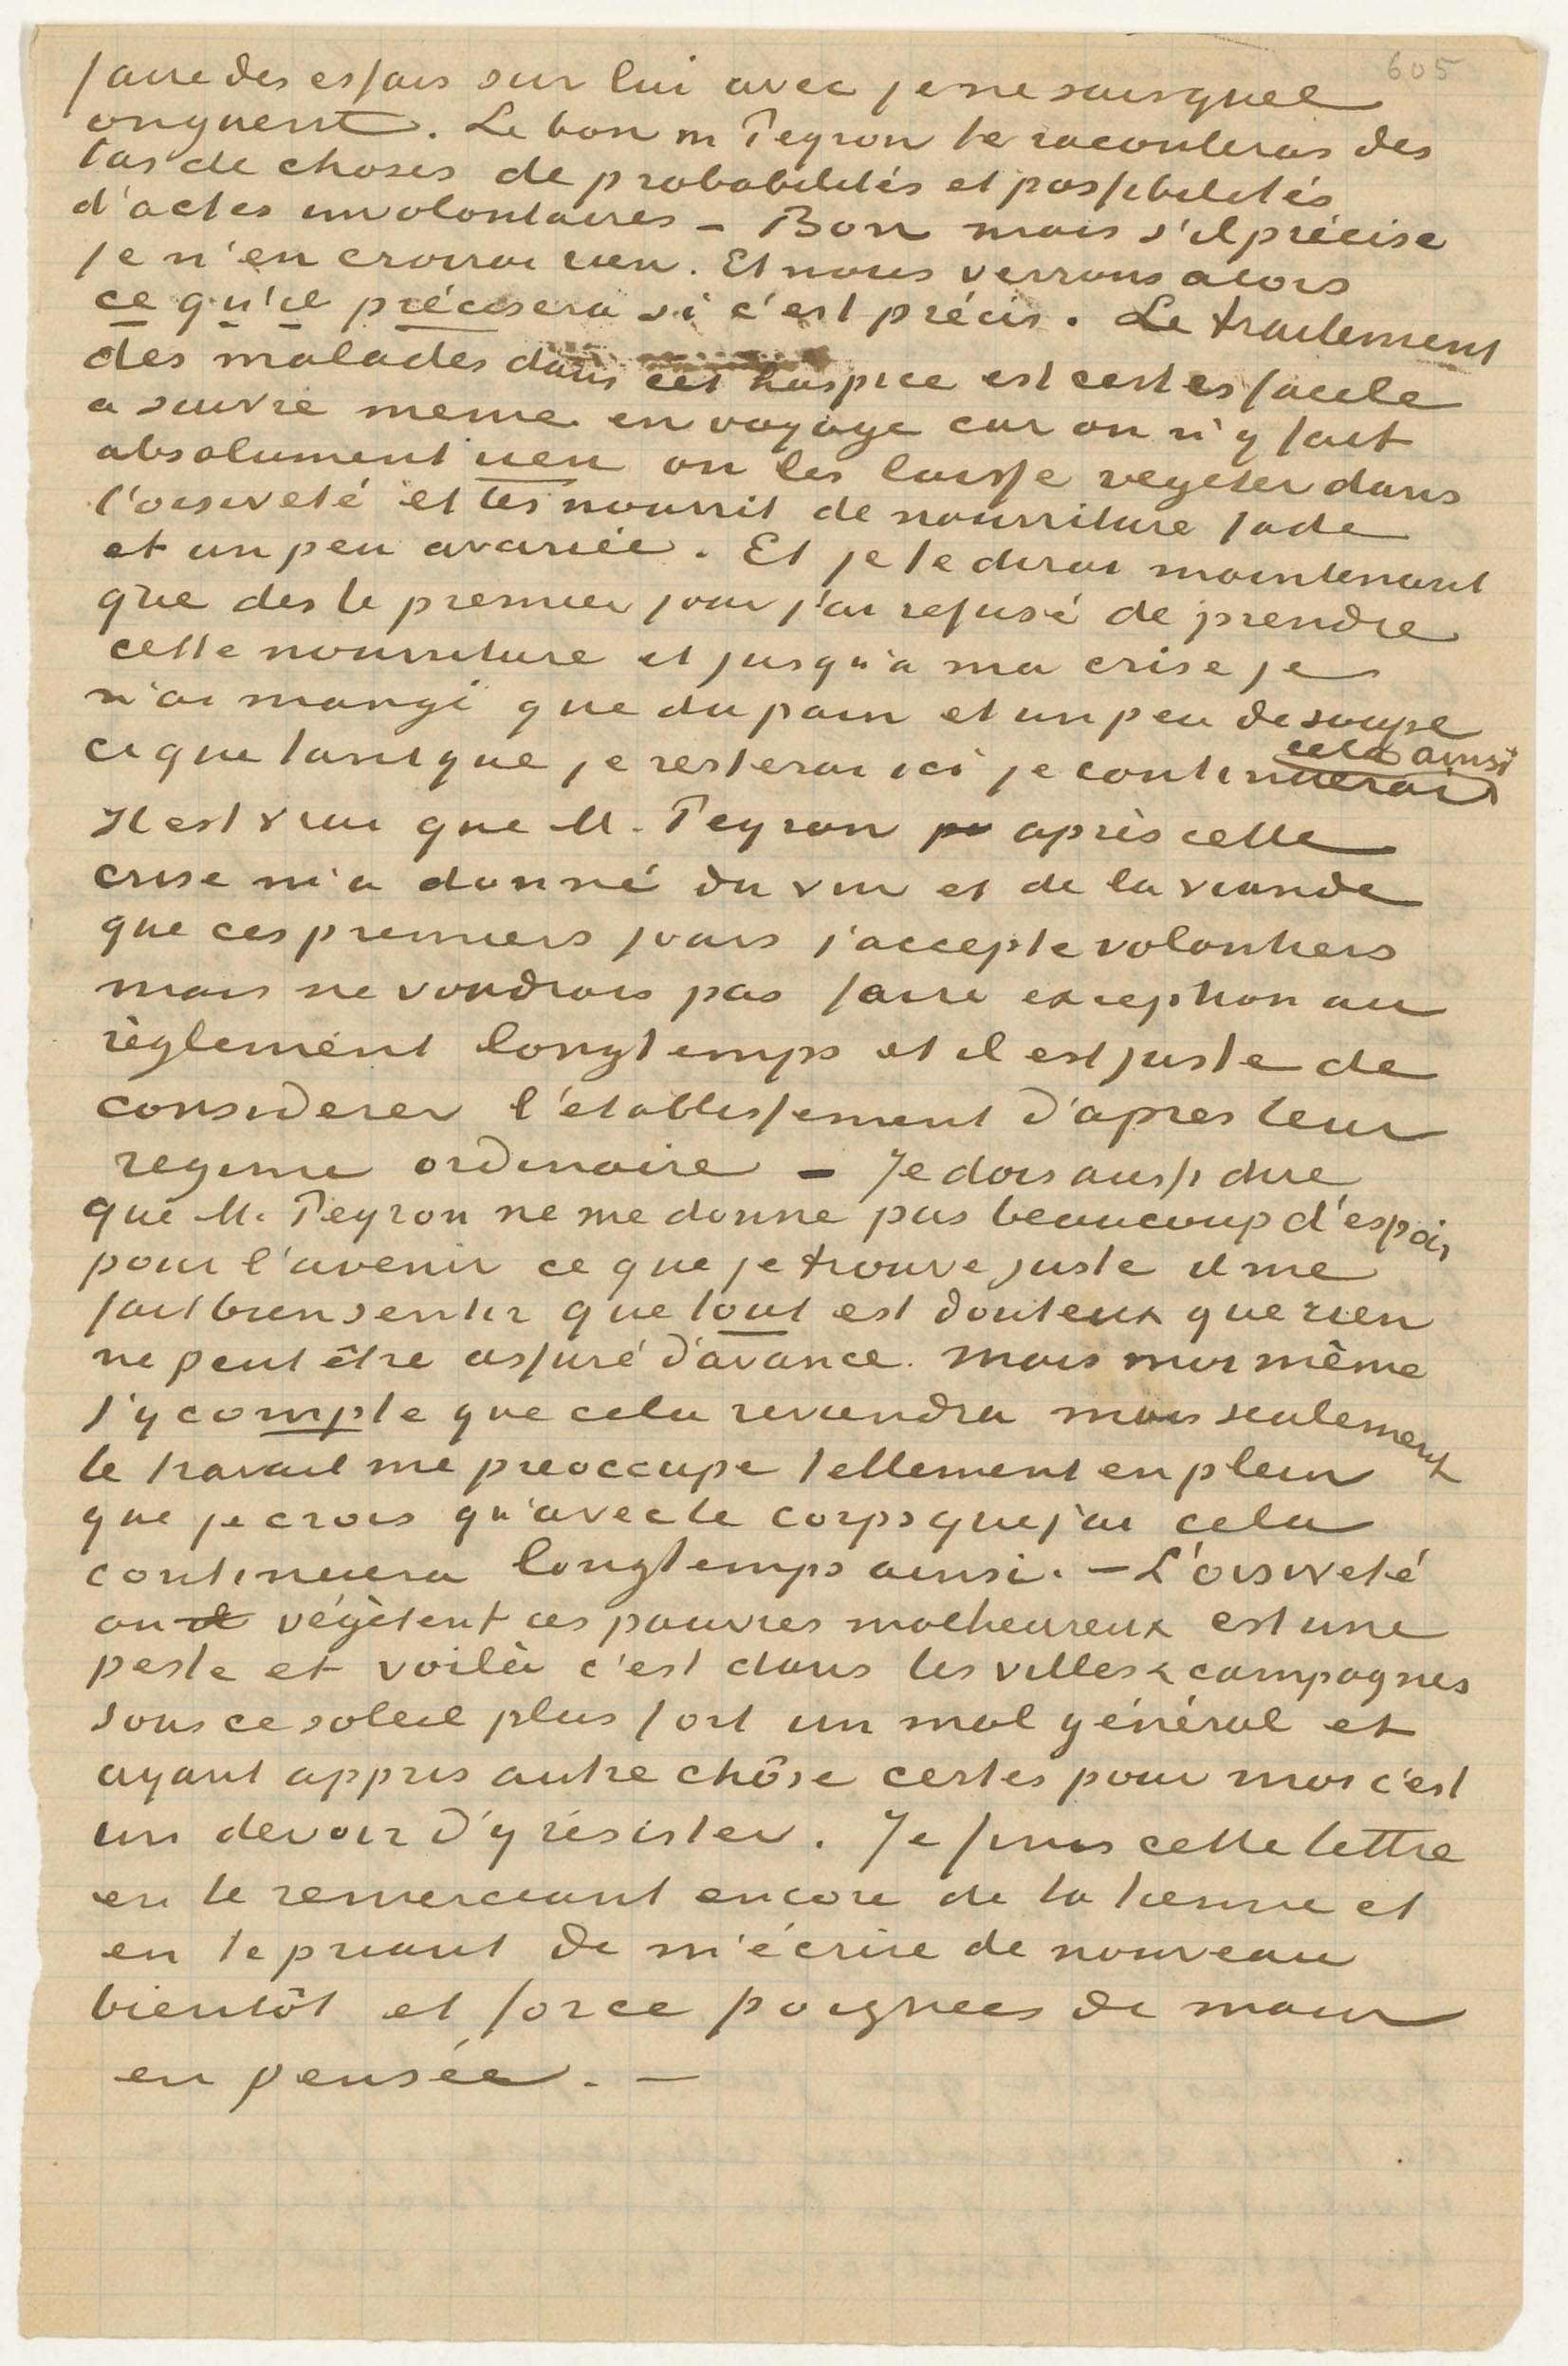 605
faire des essais sur lui avec je ne sais quel
onguent. Le bon m Peyron te raconteras des
tas de choses de probabilités et possibilités
d'actes involontaires – Bon mais s'il précise
je n'en croirai rien. Et nous verrons alors
ce qu'il précisera si c'est précis. Le traitement
des malades dans cet hospice est certes facile
a suivre meme en voyage car on n'y fait
absolument rien on les laisse vegeter dans
l'oisiveté et les nourrit de nourriture fade
et un peu avariée. Et je te dirai maintenant
que des le premier jour j'ai refusé de prendre
cette nourriture et jusqu'a ma crise je
n'ai mangé que du pain et un peu de soupe
ce que tant que je resterai ici je continuerai
cela ainsi
Il est vrai que M. Peyron après cette
crise m'a donné du vin et de la viande
que ces premiers jours j'accepte volontiers
mais ne voudrais pas faire exception au
règlement longtemps et il est juste de
considerer l'etablissement d'apres leur
regime ordinaire – Je dois aussi dire
que M. Peyron ne me donne pas beaucoup d'espoir
pour l'avenir ce que je trouve juste il me
fait bien sentir que tout est douteux que rien
ne peut être assuré d'avance. Mais moi même
j'y compte que cela reviendra mais seulement
le travail me preoccupe tellement en plein
que je crois qu'avec le corps que j'ai cela
continuera longtemps ainsi. – L'oisiveté
ou végètent ces pauvres malheureux est une
peste et voilà c'est dans les villes & campagnes
sous ce soleil plus fort un mal général et
ayant appris autre chôse certes pour moi c'est
un devoir d'y résister. Je finis cette lettre
en te remerciant encore de la tienne et
en te priant de m'écrire de nouveau
bientôt et force poignees de main
en pensée. –